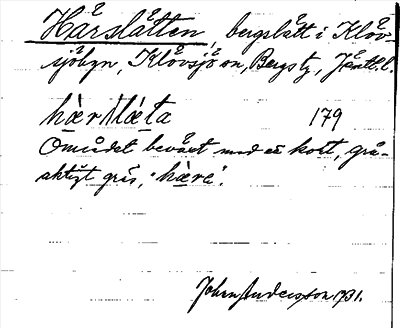 Hårslåtten, bergslått i Klöv-
sjöbyn, Klövsjö sn, Bergs tg, Jämtl. l.
179
Området beväxt med en kort, grå-
aktigt gräs, "hære".
John Andersson 1931.